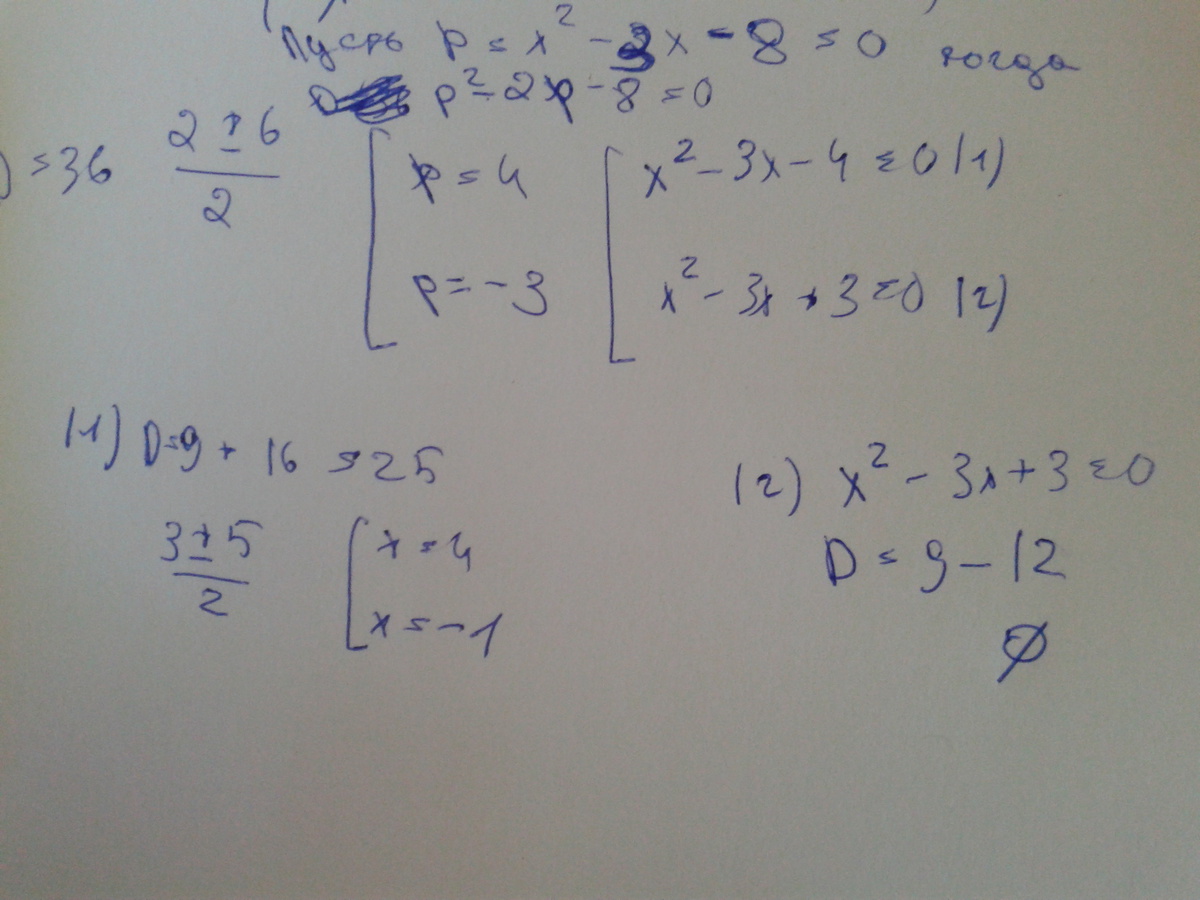 Пусть p = x² - 3x - 8 = 0 тогда
p² - 2p - 8 = 0
) = 36 (2 ± 6)/2 [ p = 4 [ x² - 3x - 4 = 0 (1)
p = -3 x² - 3x + 3 = 0 (2)
(1) D = 9 + 16 = 25
(3 ± 5)/2 [ x = 4
x = -1
(2) x² - 3x + 3 = 0
D = 9 - 12
∅